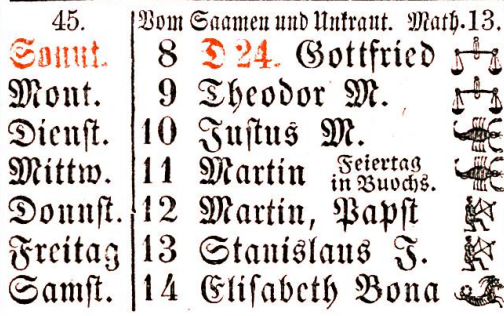 45. Vom Saamen und Unkraut. Math.13.
Sonnt. 8 D 24. Gottfried
Mont. 9 Theodor M.
Dienst. 10 Justus M.
Mittw. 11 Martin Feiertag in Buochs.
Donnst. 12 Martin, Papst
Freitag 13 Stanislaus J.
Samst. 14 Elisabeth Bona